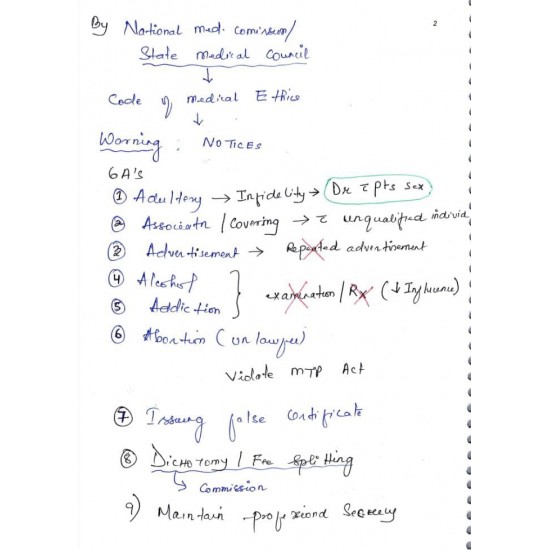 2
By National med. comission/
State medical council
↓
Code of medical Ethics
↓
Warning : NOTICES
6A's
① Adultery → Infidelity → Dr c̄ pts sex
② Associatn / Covering → c̄ unqualified individ
③ Advertisement → Repeated advertisement
④ Alcohol
⑤ Addiction } examination / Rx (↓ Influence)
⑥ Abortion (unlawful)
Violate MTP Act
⑦ Issuing false certificate
⑧ DICHOTOMY / Fee splitting
↳ Commission
9) Maintain professional Secrecy